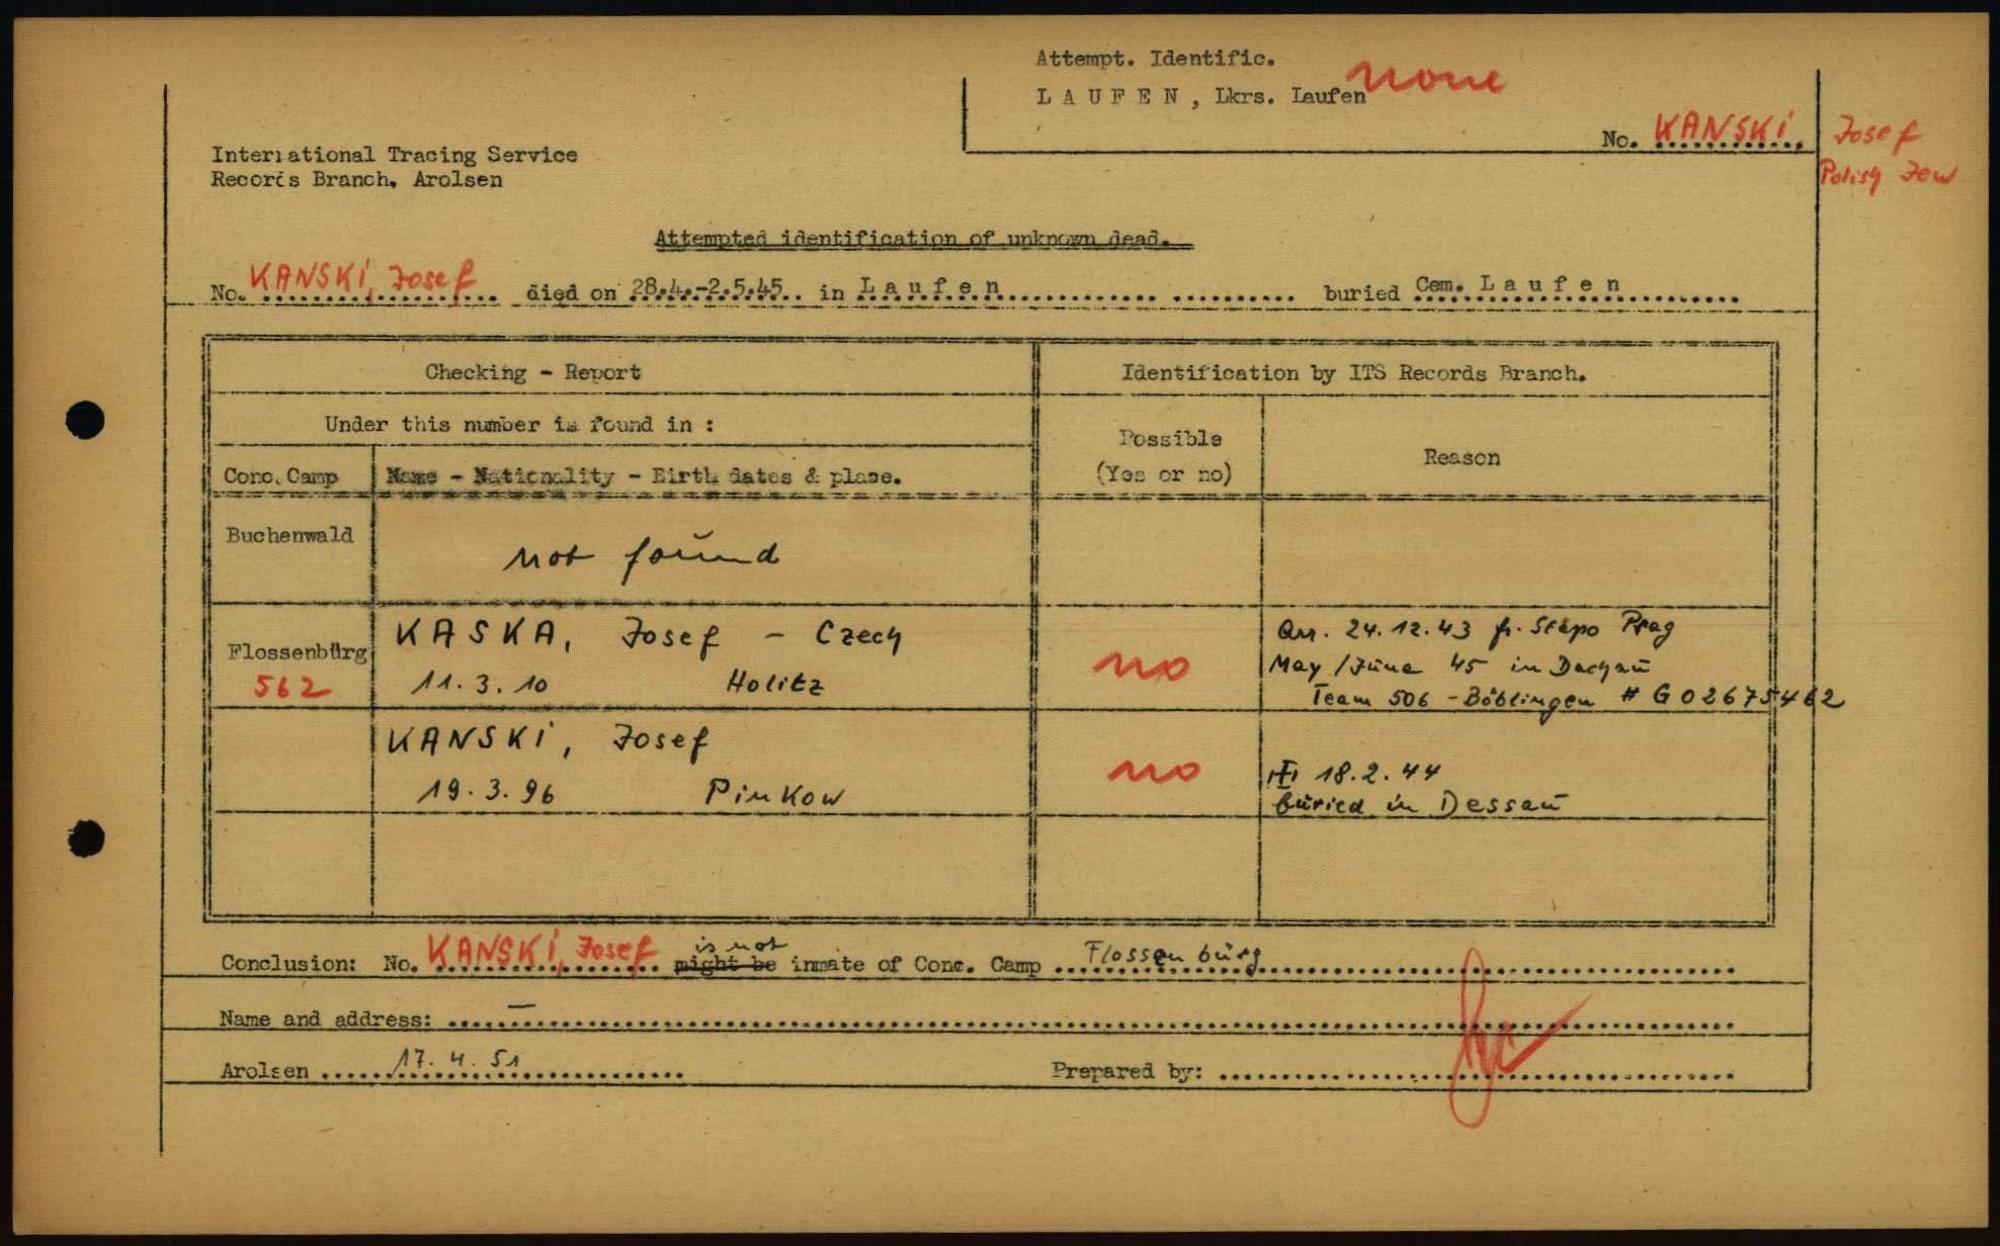 Attempt. Identific.
L A U F E N , Lkrs. Laufen none
No. KANSKI, Josef
Polish Jew
International Tracing Service
Records Branch, Arolsen
Attempted identification of unknown dead.
No. KANSKI, Josef died on 28.4.-2.5.45 in L a u f e n buried Cem. L a u f e n
Checking - Report
Identification by ITS Records Branch.
Under this number is found in :
Possible
(Yes or no)
Reason
Conc.Camp
Name - Nationality - Birth dates & place.
Buchenwald
not found
Flossenbürg
562
KASKA, Josef - Czech
11.3.10 Holitz
no
Arr. 24.12.43 fr. Stapo Prag
May/June 45 in Dachau
Team 506 - Böblingen # G02675462
KANSKI, Josef
19.3.96 Pinkow
no
18.2.44
buried in Dessau
Conclusion: No. KANSKI, Josef is not might be inmate of Conc. Camp Flossenbürg
Name and address: —
Arolsen 17.4.51
Prepared by: